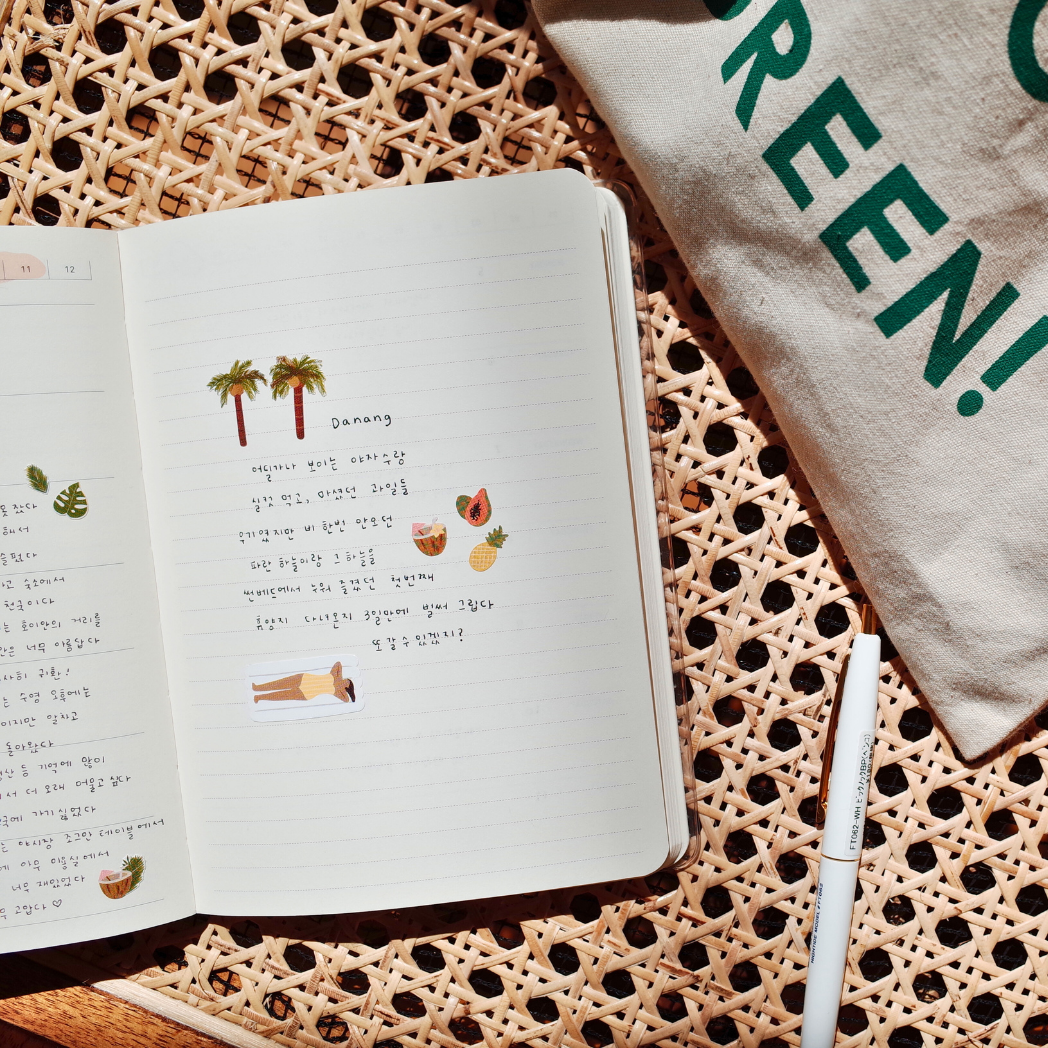 11 12
못 잤다
해서
슬펐다
하고 숙소에서
천국이다
는 호이안의 거리를
안은 너무 아름답다
무사히 귀환!
는 수영 오후에는
이지만 알차고
돌아왔다
산 등 기억에 많이
서 더 오래 머물고 싶다
국에 가기 싫었다
는 야시장 조그만 테이블에서
에 야무 미용실에서
너무 재밌었다
고맙다 ♡
Danang
어딜가나 보이는 야자수랑
실컷 먹고, 마셨던 과일들
우기였지만 비 한번 안오던
파란 하늘이랑 그 하늘을
썬베드에서 누워 즐겼던 첫번째
휴양지 다녀온지 3일만에 벌써 그립다
또 갈 수 있겠지?
REEN!
FT062-WH ビックノックBP(ペンコ)